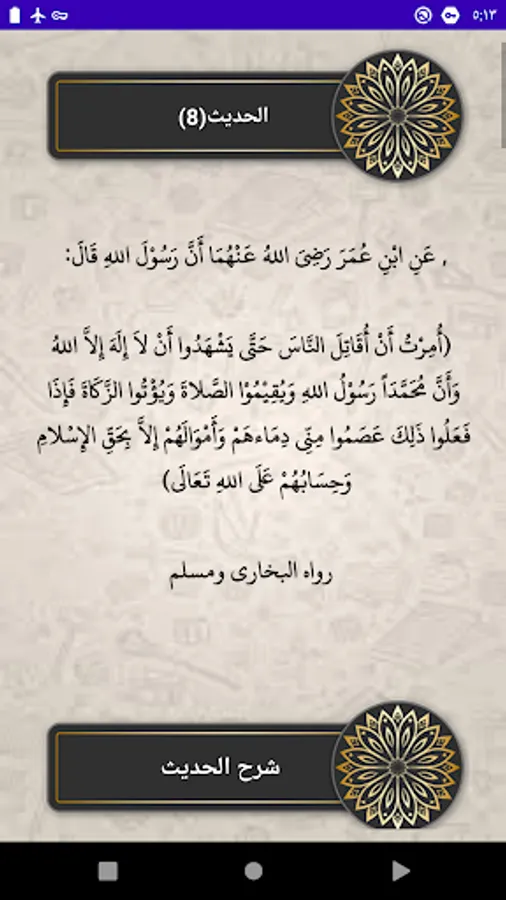 ٥:١٣
الحديث(8)
, عَنِ ابْنِ عُمَرَ رَضِيَ اللهُ عَنْهُمَا أَنَّ رَسُوْلَ اللهِ قَالَ:
(أُمِرْتُ أَنْ أُقَاتِلَ النَّاسَ حَتَّى يَشْهَدُوا أَنْ لاَ إِلَهَ إِلاَّ اللهُ
وَأَنَّ مُحَمَّدَاً رَسُوْلُ اللهِ وَيُقِيْمُوْا الصَّلاةَ وَيُؤْتُوا الزَّكَاةَ فَإِذَا
فَعَلُوا ذَلِكَ عَصَمُوا مِنِّي دِمَاءهَمْ وَأَمْوَالَهُمْ إِلاَّ بِحَقِّ الإِسْلامِ
وَحِسَابُهُمْ عَلَى اللهِ تَعَالَى)
رواه البخاري ومسلم
شرح الحديث